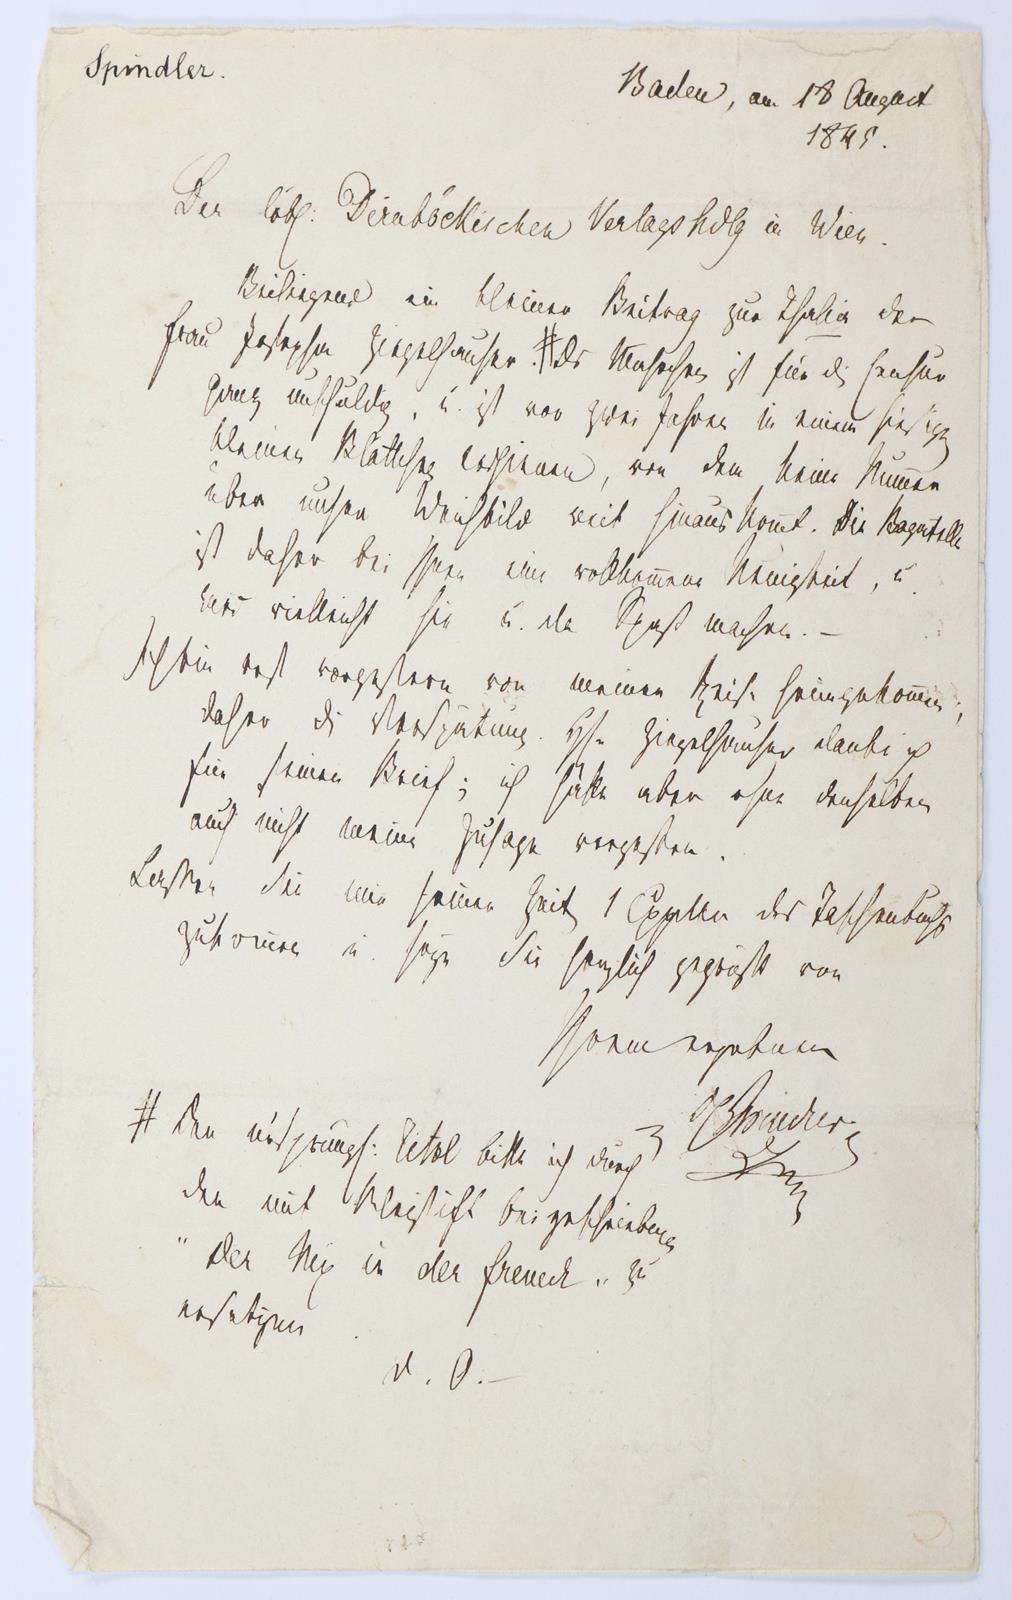 Spindler.
Baden, am 18 August
1845.
Der löbl: Dirnböckischen Verlagshdlg in Wien.
Beiliegend ein kleiner Beitrag zur Thalia der
Frau Josepha Ziegelhauser.# Das Mährchen ist für die Censur
ganz unschuldig, u. ist vor zwei Jahren in einem hiesigen
kleinen Blättchen erschienen, von dem keine Numer
über unser Weichbild weit hinaus komt. Die Bagatelle
ist daher bei Ihnen eine vollkommene Neuigkeit, u.
vielleicht hie u. da Spaß machen. —
Ich bin erst vorgestern von meiner Reise heimgekommen;
daher die Verspätung. Ziegelhauser danke ich
für seinen Brief; ich hätte aber ohne denselben
auch nicht meine Zusage vergessen.
Lassen Sie mir seiner Zeit 1 Expllr des Taschenbuchs
zukommen u. seyen Sie herzlich gegrüßt von
Ihrem ergebenen
Spindler
# Den ursprungl: Titel bitte ich durch
den mit Bleistift beigeschriebenen
"Der Nix in der Fremde" zu
ersetzen.
d. O. —